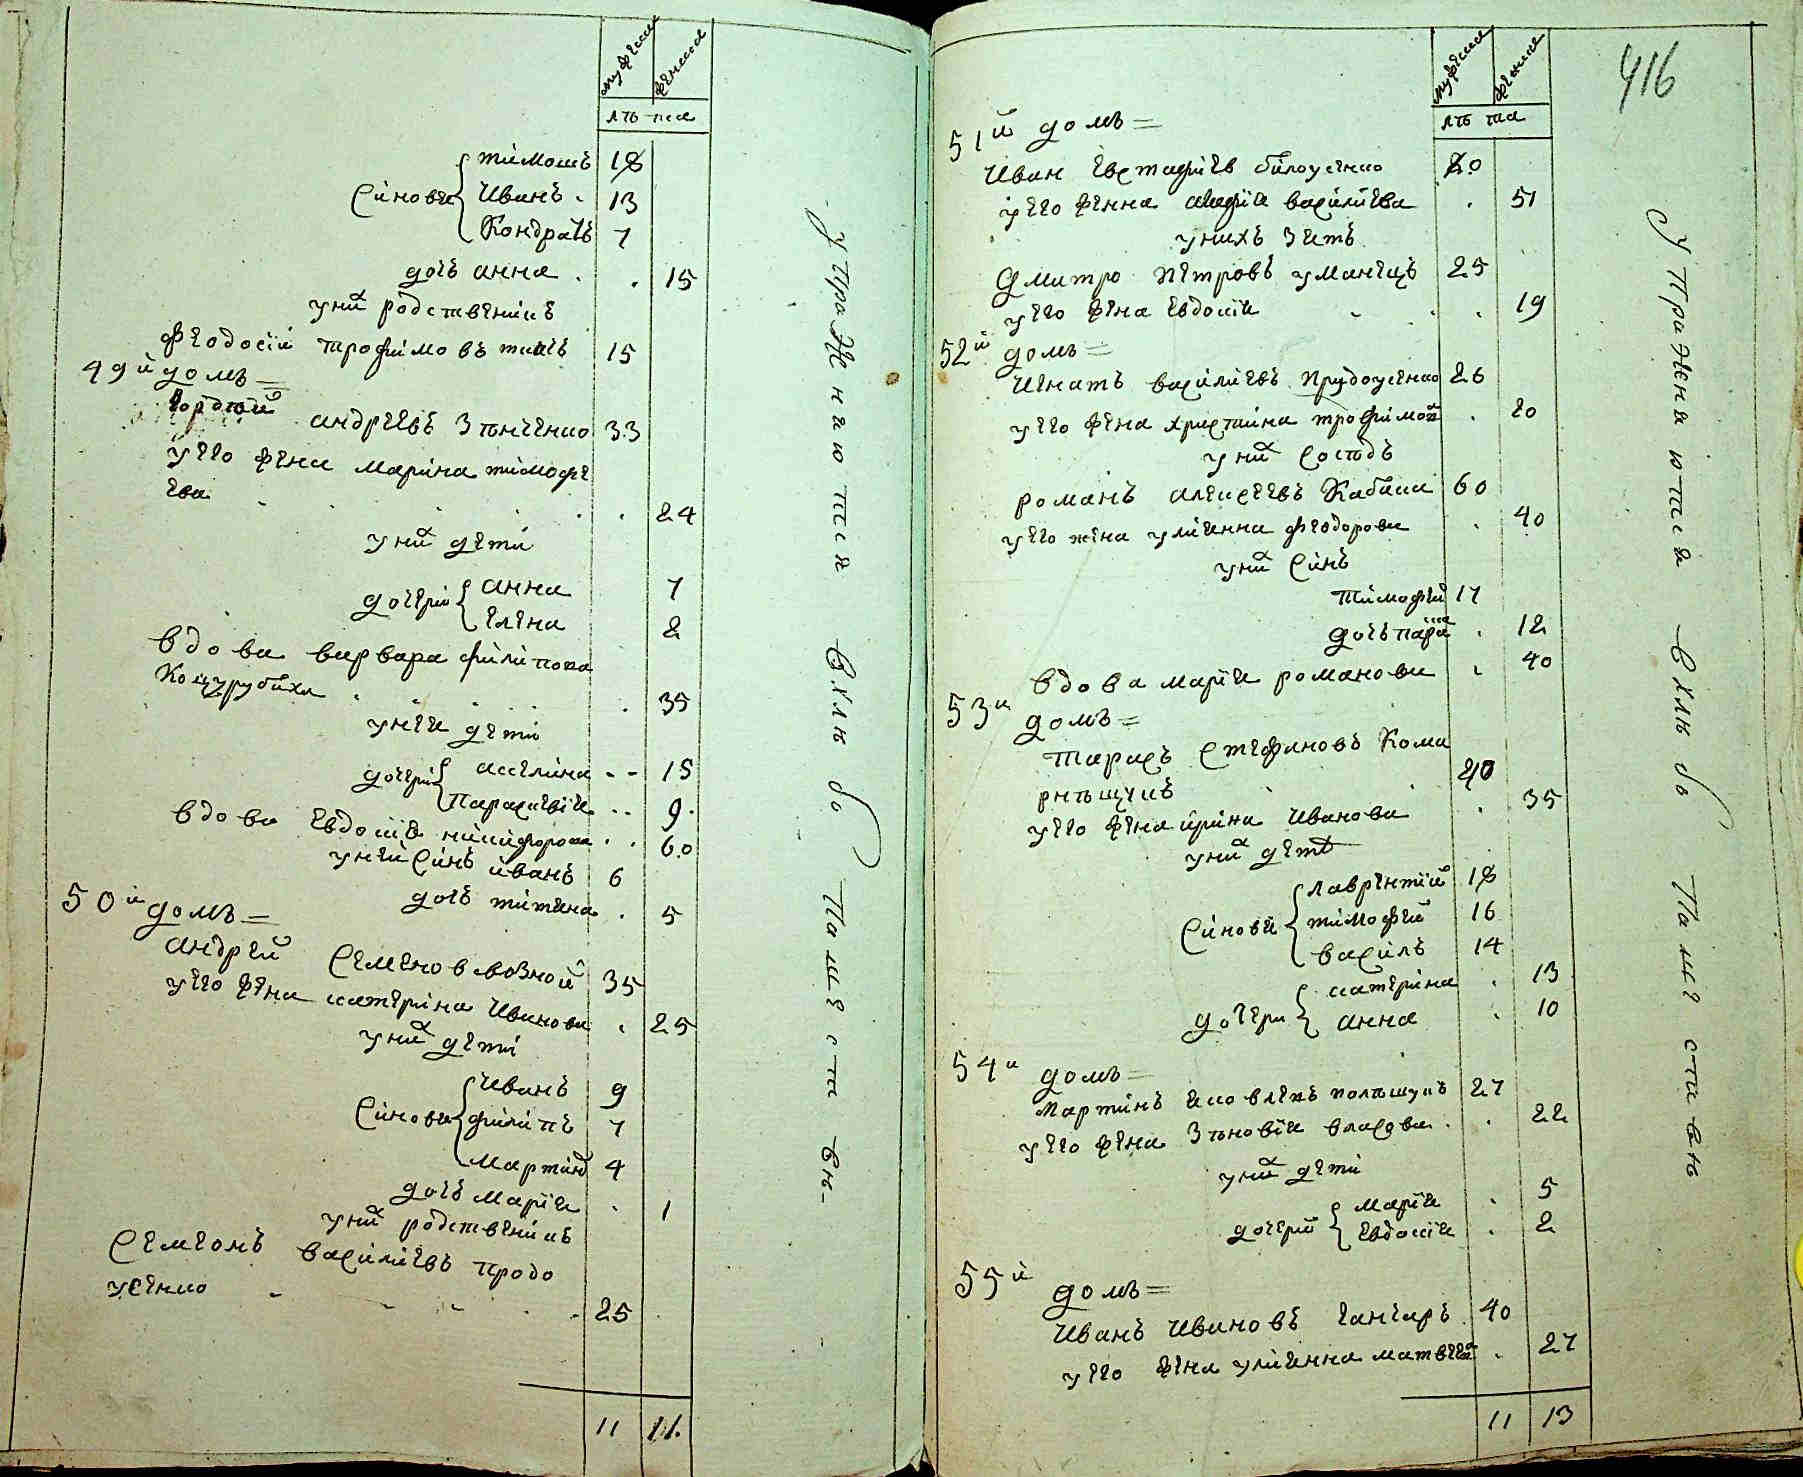 мужеска женска
лѣта
тимошъ 18
Синови Иванъ 13
Кондратъ 7
дочъ анна 15
у ных родственикъ
Феодосій трофимовъ 15
49й домъ =
андреевъ Зѣнченко 33
у его жена марина тимофе
ева 24
у ных дети
дочери анна 7
елена 2
вдова варвара филипова
Коцурубиха 35
у нея дети
дочери акелина 15
параскевія 9
вдова евдокія никифорова 60
у ней синъ иванъ 6
дочъ титяна 5
50й домъ =
андрей Семенов возной 35
у его жена катерина Иванова 25
у ных дети
Синови Иванъ 9
филипъ 7
мартинъ 4
дочъ марія 1
у ных родственикъ
Семіонъ василіевъ продо
усенко 25
11 11
416
мужеска женска
лѣта
51й домъ =
Иван евстафіев білоусенко 20
у его женна агафія василіева 51
у нихъ зять
Дмитро петровъ уманецъ 25
у его жена евдокія 19
52й домъ =
Игнатъ василіевъ прудоусенко 26
у его жена христина трофимова 20
у ных сосѣдъ
романъ алексеевъ Кабака 60
у его жена улияна феодорова 40
у ных синъ
тимофей 17
дочъ параска 12
вдова марія романова 40
53й домъ =
тарасъ стефановъ Кома
рнѣцкій 40
у его жена ирина Иванова 35
у ных дети
Синови лаврентій 18
тимофей 16
василъ 14
дочери катерина 13
анна 10
54й домъ =
мартинъ яковлевъ полѣщукъ 27
у его жена Зѣновія власова 22
у ных дети
дочери марія 5
евдокія 2
55й домъ =
Иванъ Ивановъ ганчаръ 40
у его жена улияна матвеева 27
11 13